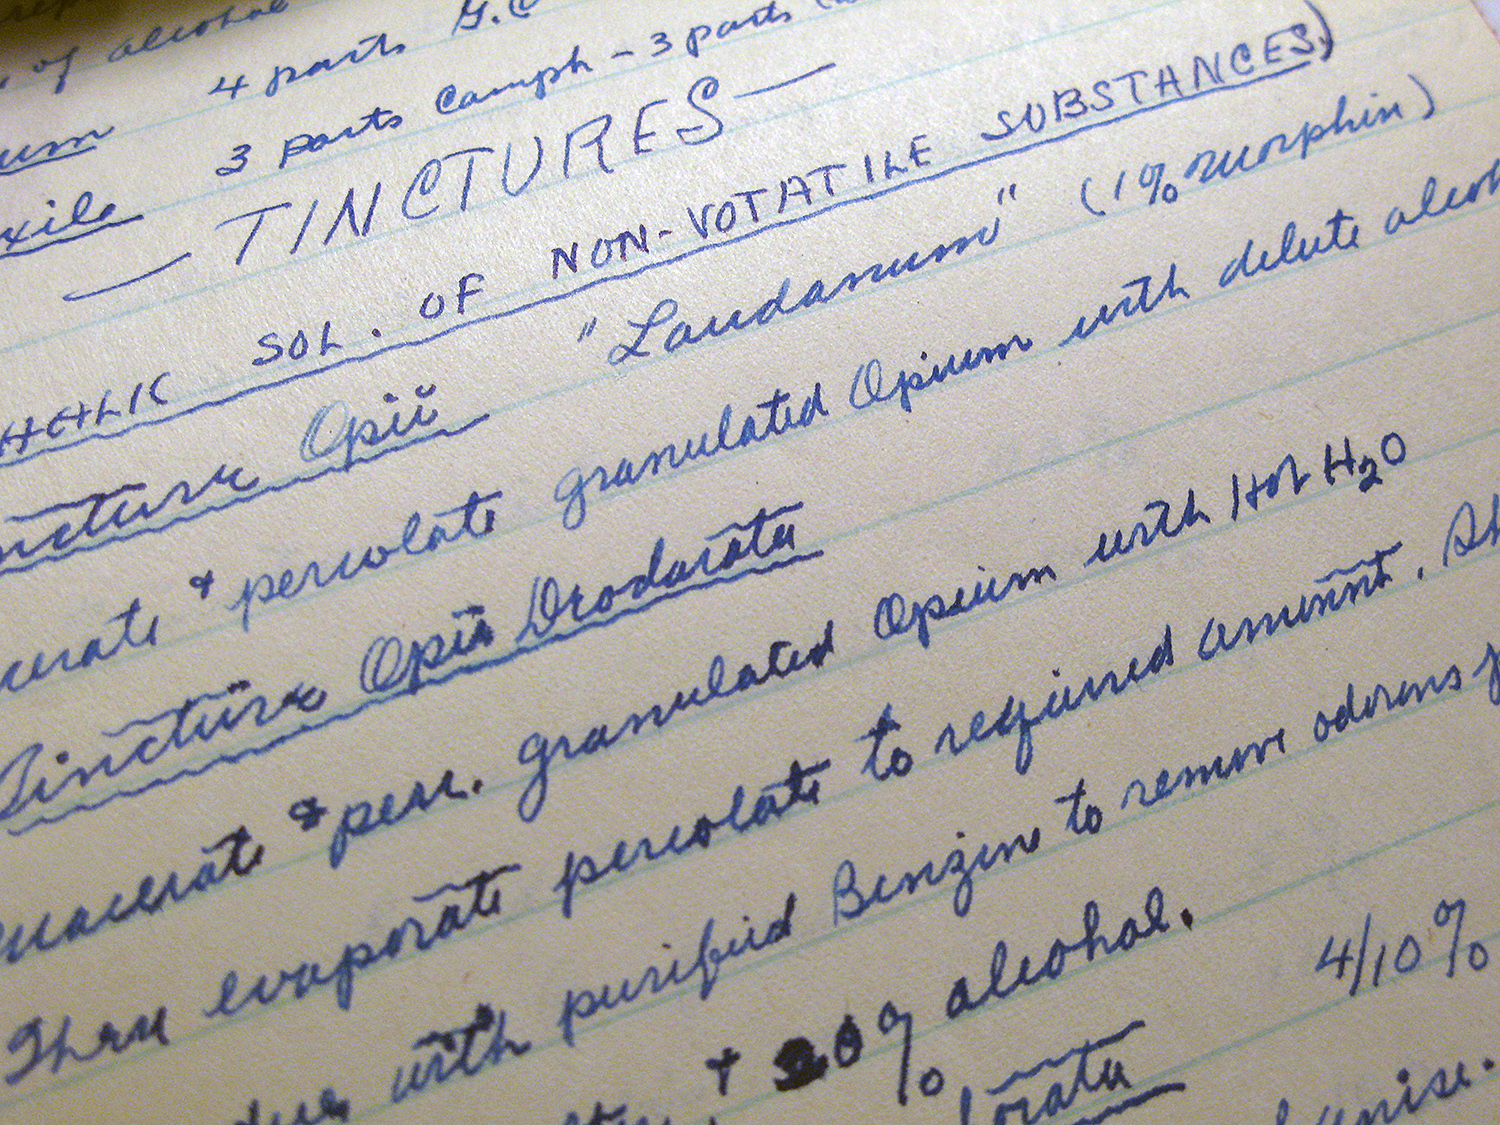 of alcohol
4 parts G.C
um 3 parts Camph - 3 parts
xile
— TINCTURES —
HOLIC SOL. OF NON-VOTATILE SUBSTANCES.)
ncture Opii "Laudanum" (1% Morphin)
cerate & percolate granulated Opium with delute alcoh
Tincture Opii Deodorata
macerate & perc. granulated Opium with Hot H2O
Then evaporate percolate to required amount. Sh
due with purified Benzine to remove odorous p
+ 20% alcohol.
orata 4/10%
anise.